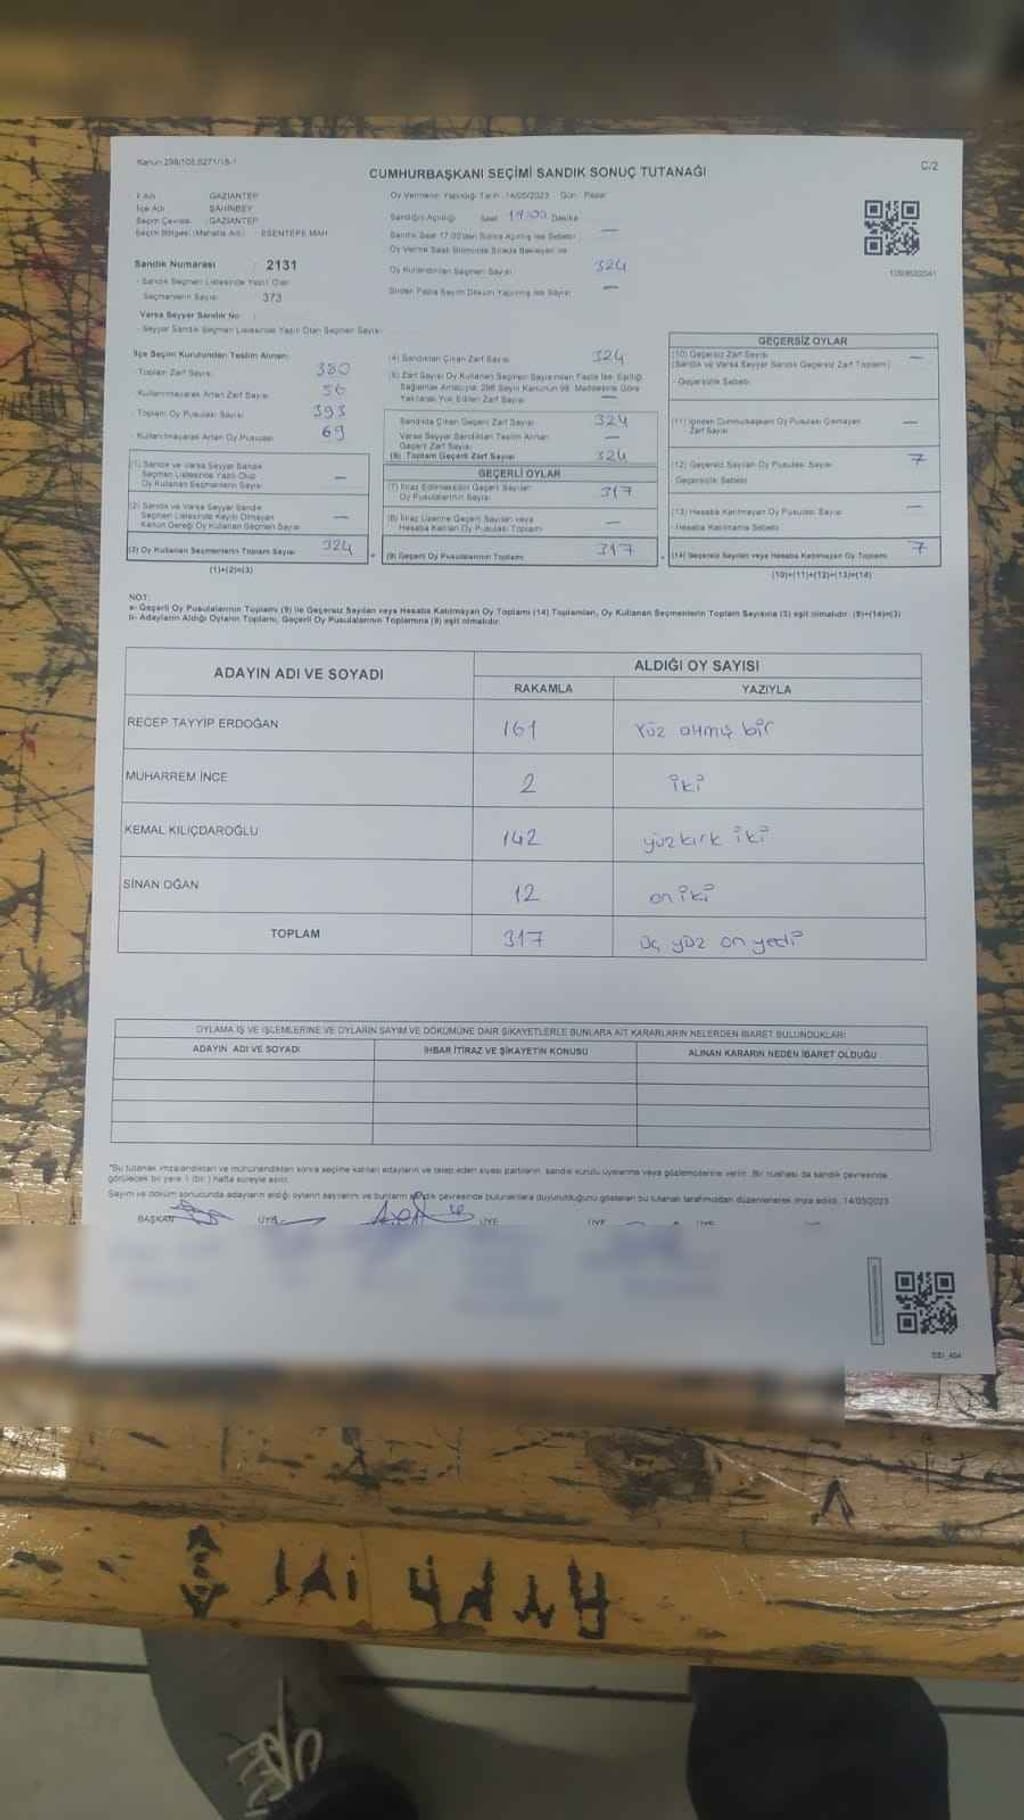 Kanun 298/105,6271/15-1
C/2
CUMHURBAŞKANI SEÇİMİ SANDIK SONUÇ TUTANAĞI
İl Adı GAZİANTEP
İlçe Adı ŞAHİNBEY
Seçim Çevresi GAZİANTEP
Seçim Bölgesi (Mahalle Adı) ESENTEPE MAH
Sandık Numarası 2131
- Sandık Seçmen Listesinde Yazılı Olan
Seçmenlerin Sayısı 373
Varsa Seyyar Sandık No
- Seyyar Sandık Seçmen Listesinde Yazılı Olan Seçmen Sayısı
Oy Vermenin Yapıldığı Tarih 14/05/2023 Gün Pazar
Sandığın Açıldığı Saat Dakika
Sandık Saat 17.00'den Sonra Açılmış İse Sebebi —
Oy Kullandırılan Seçmen Sayısı 324
Birden Fazla Sayım Döküm Yapılmış İse Sayısı —
İlçe Seçim Kurulundan Teslim Alınan:
- Toplam Zarf Sayısı 380
- Kullanılmayarak Artan Zarf Sayısı 56
- Toplam Oy Pusulası Sayısı 393
- Kullanılmayarak Artan Oy Pusulası 69
(1) Sandık ve Varsa Seyyar Sandık
Seçmen Listesinde Yazılı Olup
Oy Kullanan Seçmenlerin Sayısı —
(2) Sandık ve Varsa Seyyar Sandık
Seçmen Listesinde Kaydı Olmayan
Kanun Gereği Oy Kullanan Seçmen Sayısı —
(3) Oy Kullanan Seçmenlerin Toplam Sayısı 324
(1)+(2)=(3)
(4) Sandıktan Çıkan Zarf Sayısı 324
(5) Zarf Sayısı Oy Kullanan Seçmen Sayısından Fazla İse, Eşitliği
Sağlamak Amacıyla, 298 Sayılı Kanunun 98. Maddesine Göre
Yakılarak Yok Edilen Zarf Sayısı —
Sandıkta Çıkan Geçerli Zarf Sayısı 324
Varsa Seyyar Sandıktan Teslim Alınan
Geçerli Zarf Sayısı —
(6) Toplam Geçerli Zarf Sayısı 324
GEÇERLİ OYLAR
(7) İtiraz Edilmeksizin Geçerli Sayılan
Oy Pusulalarının Sayısı 317
(8) İtiraz Üzerine Geçerli Sayılan veya
Hesaba Katılan Oy Pusulası Toplamı —
(9) Geçerli Oy Pusulalarının Toplamı 317
GEÇERSİZ OYLAR
(10) Geçersiz Zarf Sayısı —
(Sandık ve Varsa Seyyar Sandık Geçersiz Zarf Toplamı)
- Geçersizlik Sebebi
(11) İçinden Cumhurbaşkanı Oy Pusulası Çıkmayan
Zarf Sayısı —
(12) Geçersiz Sayılan Oy Pusulası Sayısı 7
Geçersizlik Sebebi
(13) Hesaba Katılmayan Oy Pusulası Sayısı —
- Hesaba Katılmama Sebebi
(14) Geçersiz Sayılan veya Hesaba Katılmayan Oy Toplamı 7
(10)+(11)+(12)+(13)=(14)
NOT:
a- Geçerli Oy Pusulalarının Toplamı (9) ile Geçersiz Sayılan veya Hesaba Katılmayan Oy Toplamı (14) Toplamları, Oy Kullanan Seçmenlerin Toplam Sayısına (3) eşit olmalıdır. (9)+(14)=(3)
b- Adayların Aldığı Oyların Toplamı, Geçerli Oy Pusulalarının Toplamına (9) eşit olmalıdır.
ADAYIN ADI VE SOYADI
ALDIĞI OY SAYISI
RAKAMLA YAZIYLA
RECEP TAYYİP ERDOĞAN 161 Yüz altmış bir
MUHARREM İNCE 2 iki
KEMAL KILIÇDAROĞLU 142 yüzkırk iki
SİNAN OĞAN 12 on iki
TOPLAM 317 üç yüz on yedi
OYLAMA İŞ VE İŞLEMLERİNE VE OYLARIN SAYIM VE DÖKÜMÜNE DAİR ŞİKAYETLERLE BUNLARA AİT KARARLARIN NELERDEN İBARET BULUNDUKLARI
ADAYIN ADI VE SOYADI İHBAR İTİRAZ VE ŞİKAYETİN KONUSU ALINAN KARARIN NEDEN İBARET OLDUĞU
"Bu tutanak imzalandıktan ve mühürlendikten sonra seçime katılan adayların ve talep eden siyasi partilerin sandık kurulu üyelerine veya gözlemcilerine verilir. Bir nüshası da sandık çevresinde
görülecek bir yere 1 (bir) hafta süreyle asılır.
Sayım ve döküm sonucunda adayların aldığı oyların sayılarını ve bunların sandık çevresinde bulunanlara duyurulduğunu gösteren bu tutanak tarafımızdan düzenlenerek imza edildi. 14/05/2023
BAŞKAN ÜYE ÜYE ÜYE ÜYE